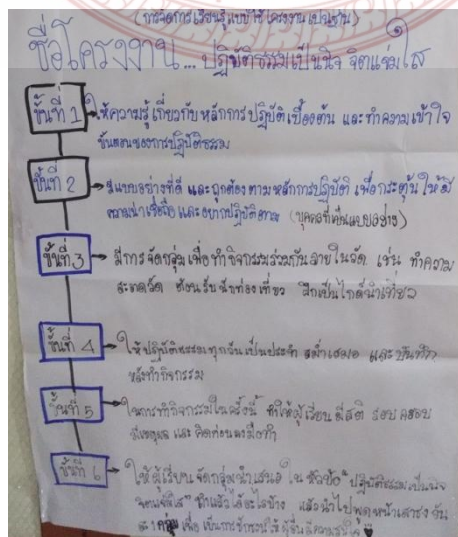 (การจัดการเรียนรู้แบบใช้โครงงานเป็นฐาน)
ชื่อโครงงาน... ปฏิบัติธรรมเป็นนิจ จิตแจ่มใส
ขั้นที่ 1 ให้ความรู้เกี่ยวกับหลักการปฏิบัติเบื้องต้น และทำความเข้าใจ
ขั้นตอนของการปฏิบัติธรรม
ขั้นที่ 2 มีแบบอย่างที่ดี และถูกต้องตามหลักการปฏิบัติ เพื่อกระตุ้นให้มี
ความน่าเชื่อถือและอยากปฏิบัติตาม (บุคคลที่เป็นแบบอย่าง)
ขั้นที่ 3 มีการจัดกลุ่มเพื่อทำกิจกรรมร่วมกันภายในวัด เช่น ทำความ
สะอาดวัด ต้อนรับนักท่องเที่ยว ฝึกเป็นไกด์นำเที่ยว
ขั้นที่ 4 ให้ปฏิบัติธรรมทุกวันเป็นประจำ สม่ำเสมอ และบันทึก
หลังทำกิจกรรม
ขั้นที่ 5 ในการทำกิจกรรมในครั้งนี้ ทำให้ผู้เรียนมีสติ รอบคอบ
มีเหตุผล และ คิดก่อนลงมือทำ
ขั้นที่ 6 ให้ผู้เรียนจัดกลุ่มนำเสนอ ใน หัวข้อ "ปฏิบัติธรรมเป็นนิจ
จิตแจ่มใส" ทำแล้วได้อะไรบ้าง แล้วนำไปพูดหน้าเสาธง วัน
ละ 1 กลุ่ม เพื่อ เป็นการชักชวนให้ ผู้อื่นมีความสนใจ